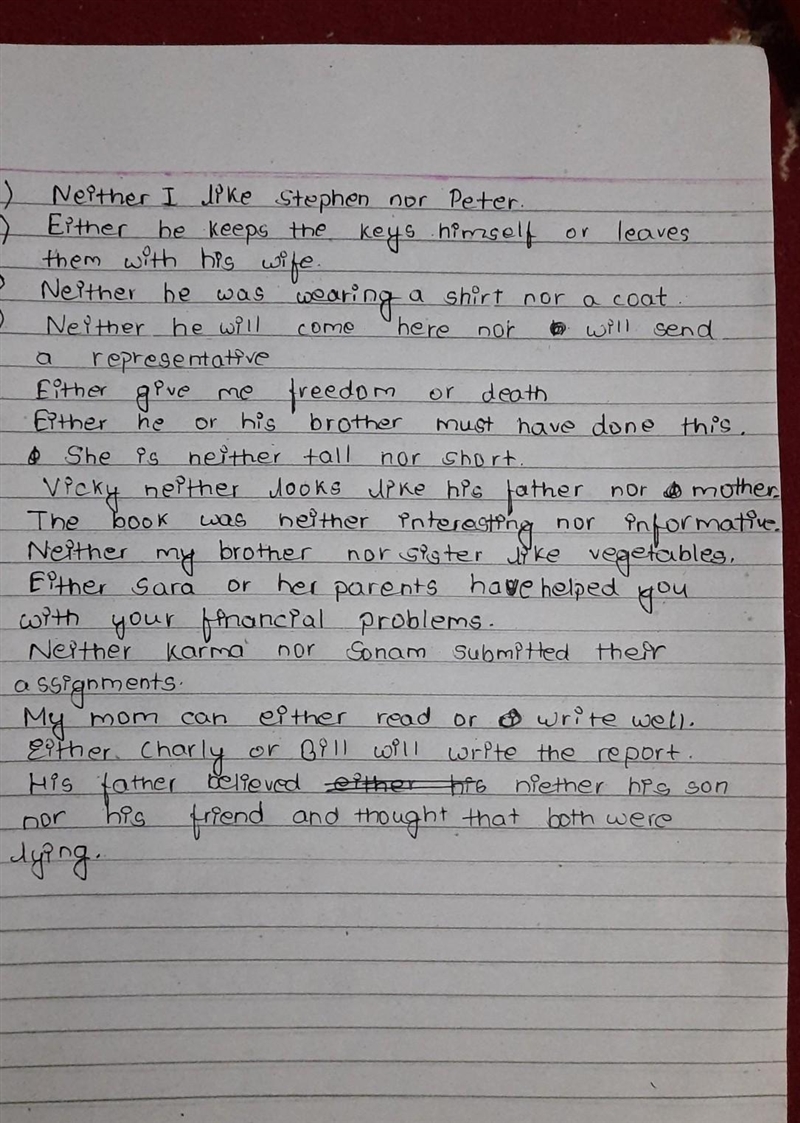 ) Neither I like Stephen nor Peter.
) Either he keeps the keys himself or leaves
them with his wife.
) Neither he was wearing a shirt nor a coat.
) Neither he will come here nor will send
a representative
Either give me freedom or death
Either he or his brother must have done this.
She is neither tall nor short.
Vicky neither looks like his father nor mother.
The book was neither interesting nor informative.
Neither my brother nor sister like vegetables.
Either Sara or her parents have helped you
with your financial problems.
Neither Karma nor Sonam submitted their
assignments.
My mom can either read or write well.
Either Charly or Bill will write the report.
His father believed either his niether his son
nor his friend and thought that both were
lying.